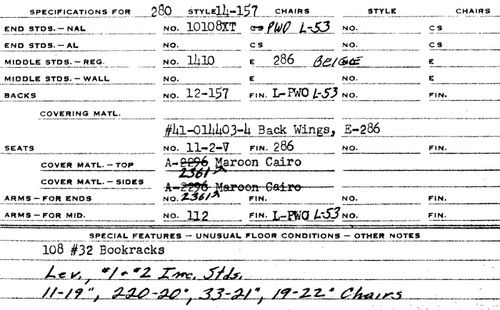 SPECIFICATIONS FOR 280 STYLE 14-157 CHAIRS STYLE CHAIRS
END STDS. - NAL NO. 10108XT CS PWO L-53 NO. CS
END STDS. - AL NO. CS NO. CS
MIDDLE STDS. - REG. NO. 1410 E 286 BEIGE NO. E
MIDDLE STDS. - WALL NO. E NO. E
BACKS NO. 12-157 FIN. L-PWO L-53 NO. FIN.
COVERING MATL.
#41-014403-4 Back Wings, E-286
SEATS NO. 11-2-V FIN. 286 NO. FIN.
COVER MATL. - TOP A-2296 Maroon Cairo
2361
COVER MATL. - SIDES A-2296 Maroon Cairo
ARMS - FOR ENDS NO. 2361 FIN. NO. FIN.
ARMS - FOR MID. NO. 112 FIN. L-PWO L-53 NO. FIN.
SPECIAL FEATURES - UNUSUAL FLOOR CONDITIONS - OTHER NOTES
108 #32 Bookracks
Lev., #1 + #2 Inc. Stds.
11-19", 220-20", 33-21", 19-22" Chairs